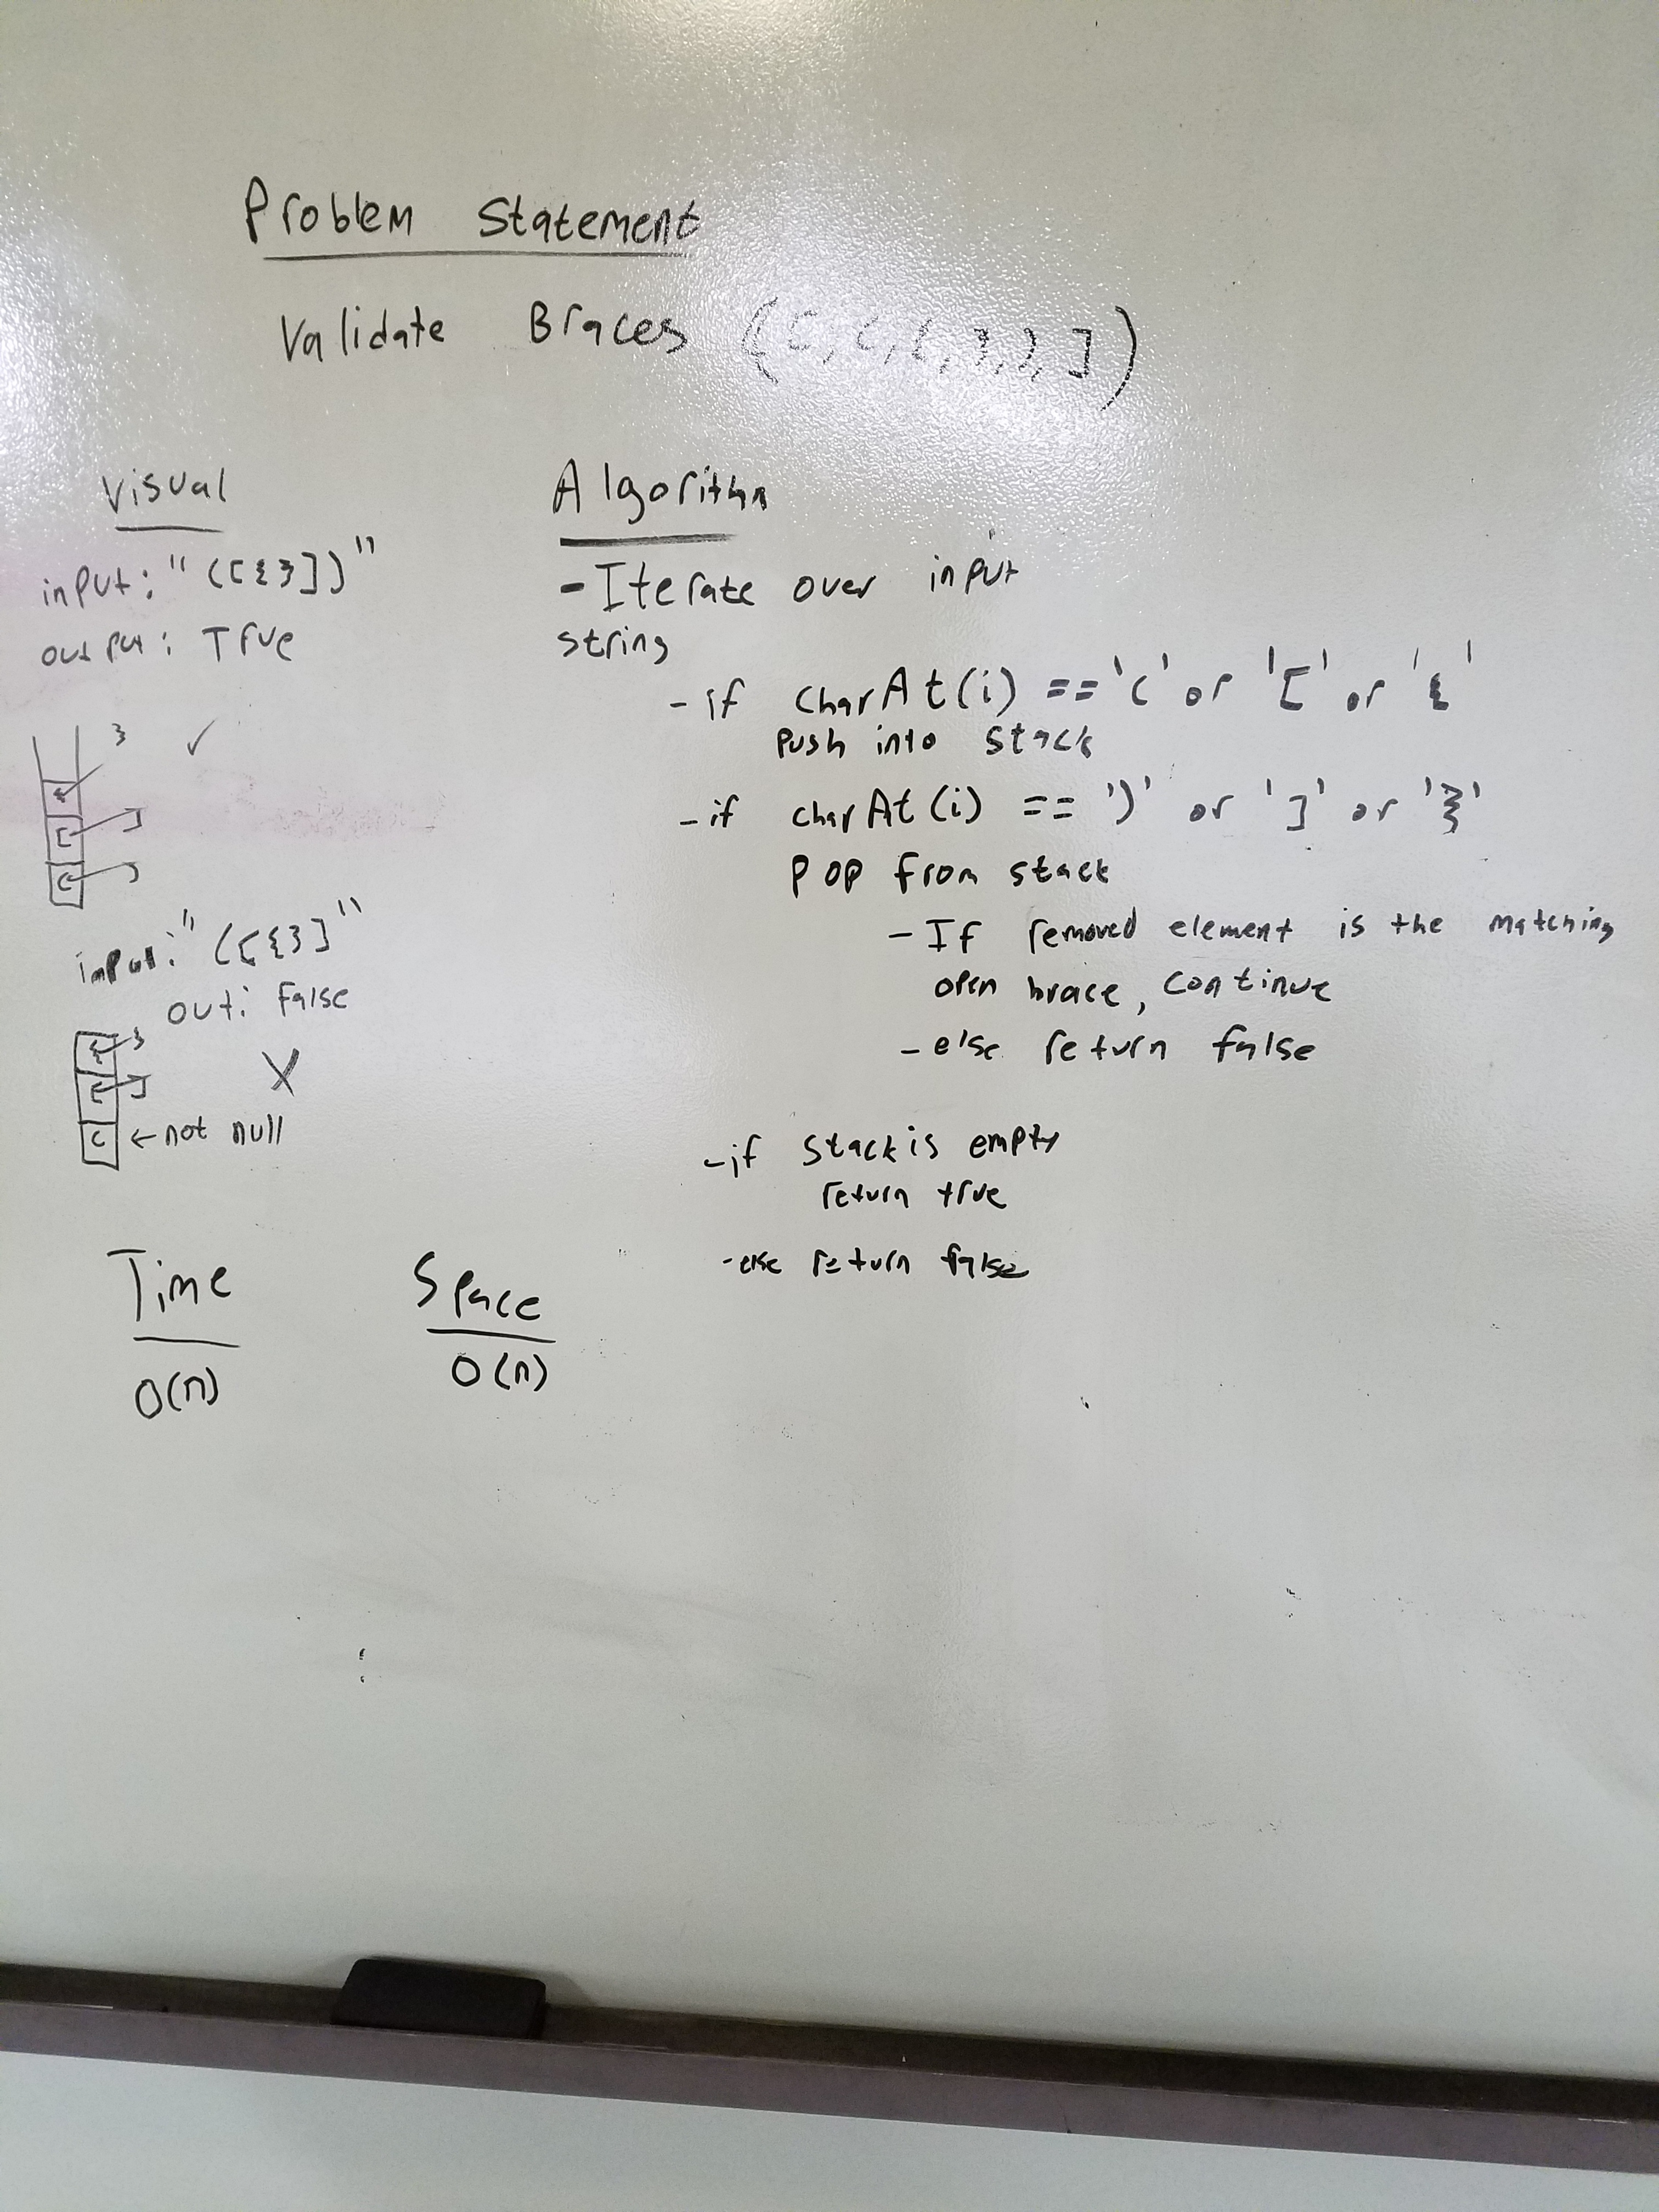 Problem Statement
Validate Braces ([, (, {, }, ), ])
Visual
input: "([{}])"
output: True
} ✓
[ ]
( )
input: "([{}]"
out: false
{ }
[ ] X
( ← not null
Algorithm
- Iterate over input
string
- if charAt(i) == '(' or '[' or '{'
push into stack
- if charAt(i) == ')' or ']' or '}'
pop from stack
- If removed element is the matching
open brace, continue
- else return false
- if stack is empty
return true
- else return false
Time
O(n)
Space
O(n)